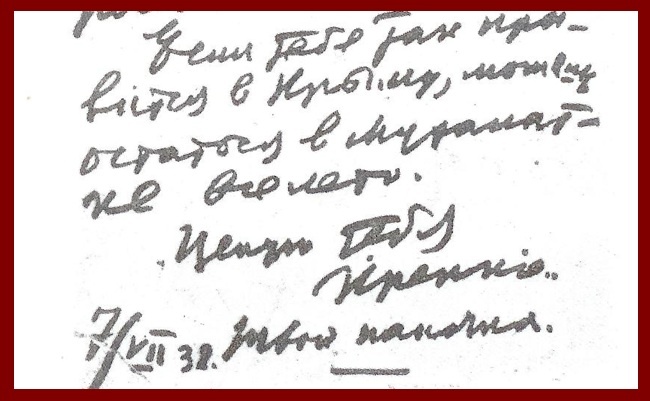 Если тебе так нра-
вится в Крыму, можешь
остаться в Мухалат-
ке все лето.
Целую тебя
крепко..
7/VII 38. Твой папочка.